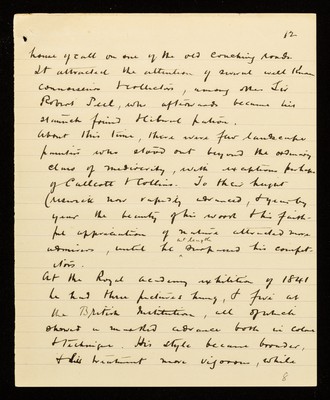 12
house of call on one of the old coaching roads.
It attracted the attention of several well known
connoisseurs & collectors, among other Sir
Robert Peel, who afterwards became his
staunch friend & liberal patron.
About this time, there were few landscape
painters who stood out beyond the ordinary
class of mediocrity, with exceptions perhaps
of Callcott & Collins. To their height
Creswick now rapidly advanced, & year by
year the beauty of his work & his faith-
ful appreciation of nature attracted more
admirers, until he at length surpassed his compet-
itors.
At the Royal Academy exhibition of 1841
he had three pictures hung, & five at
the British Institution, all of which
showed a marked advance both in colour
& technique. His style became broader,
& his treatment more vigorous, while
8